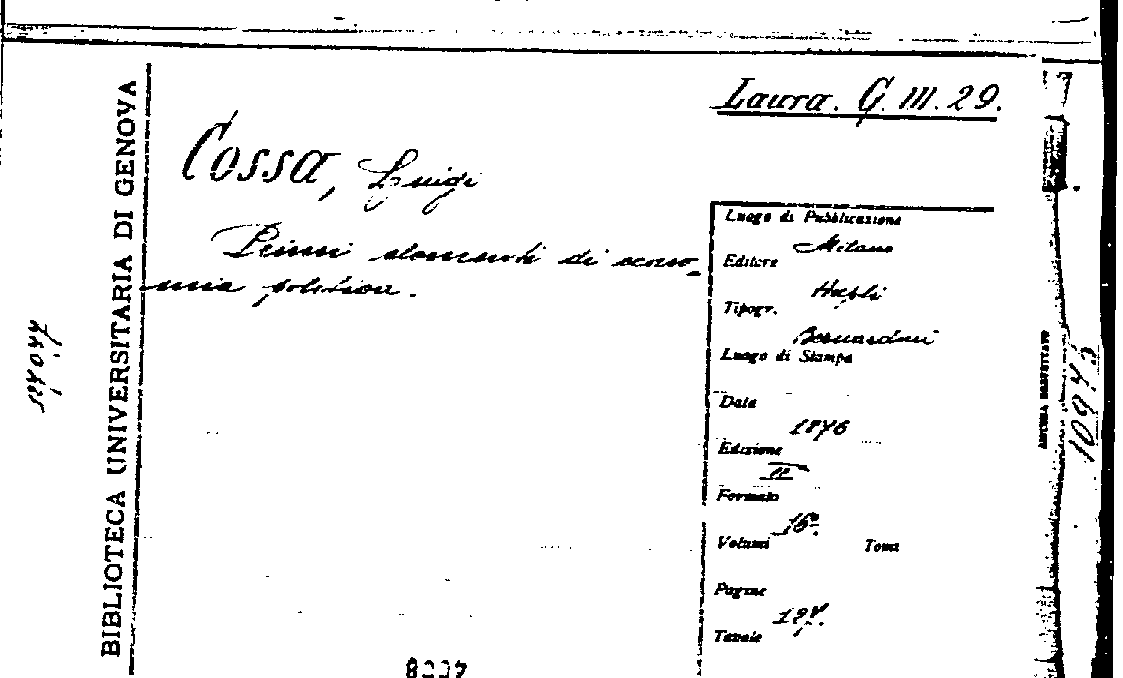 Laura. G. III. 29.
Cossa, Luigi
Primi elementi di econo-
mia politica.
BIBLIOTECA UNIVERSITARIA DI GENOVA
Luogo di Pubblicazione
Milano
Editore
Hoepli
Tipogr.
Bernardoni
Luogo di Stampa
Data
1876
Edizione
II
Formato
16º.
Volumi Tomi
Pagine
Tavole
10975